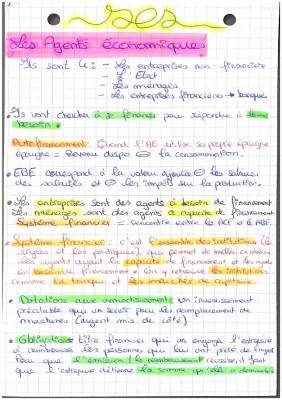 SES
Les Agents économiques.
Ils sont 4: - Les entreprises non-financière
- L'Etat
- Les ménages
- Les entreprises financières → banques
• Ils vont chercher à se financer pour répondre à leurs
besoin.
Autofinancement: Quand l'BE utilise sa propre épargne
épargne = Revenu dispo ⊖ la consommation.
• EBE correspond à la valeur ajoutée ⊖ les salaires
des salariés et ⊖ les impôts sur la production.
• Les entreprises sont des agents à besoin de financement
Les ménages sont des agents à capacité de financement
Système financier = rencontre entre le ACF et le ABF.
• Système financier: c'est l'ensemble des institutions (les
règles et les pratiques) qui permet de mettre en relation
les agents ayant la capacité de financement et les agents
en besoin de financement. On y retrouve les institutions
comme la banque et les marchés de capitaux.
• Dotations aux amortissements: un investissement
préalable qui va servir pour les remplacement de
machines (argent mis de côté)
• Obligations: titre financier qui engage l'entreprise
à rembourser les personnes qui lui ont prêté de l'argent
que l'entreprise détienne la somme qu'elle a demandé.